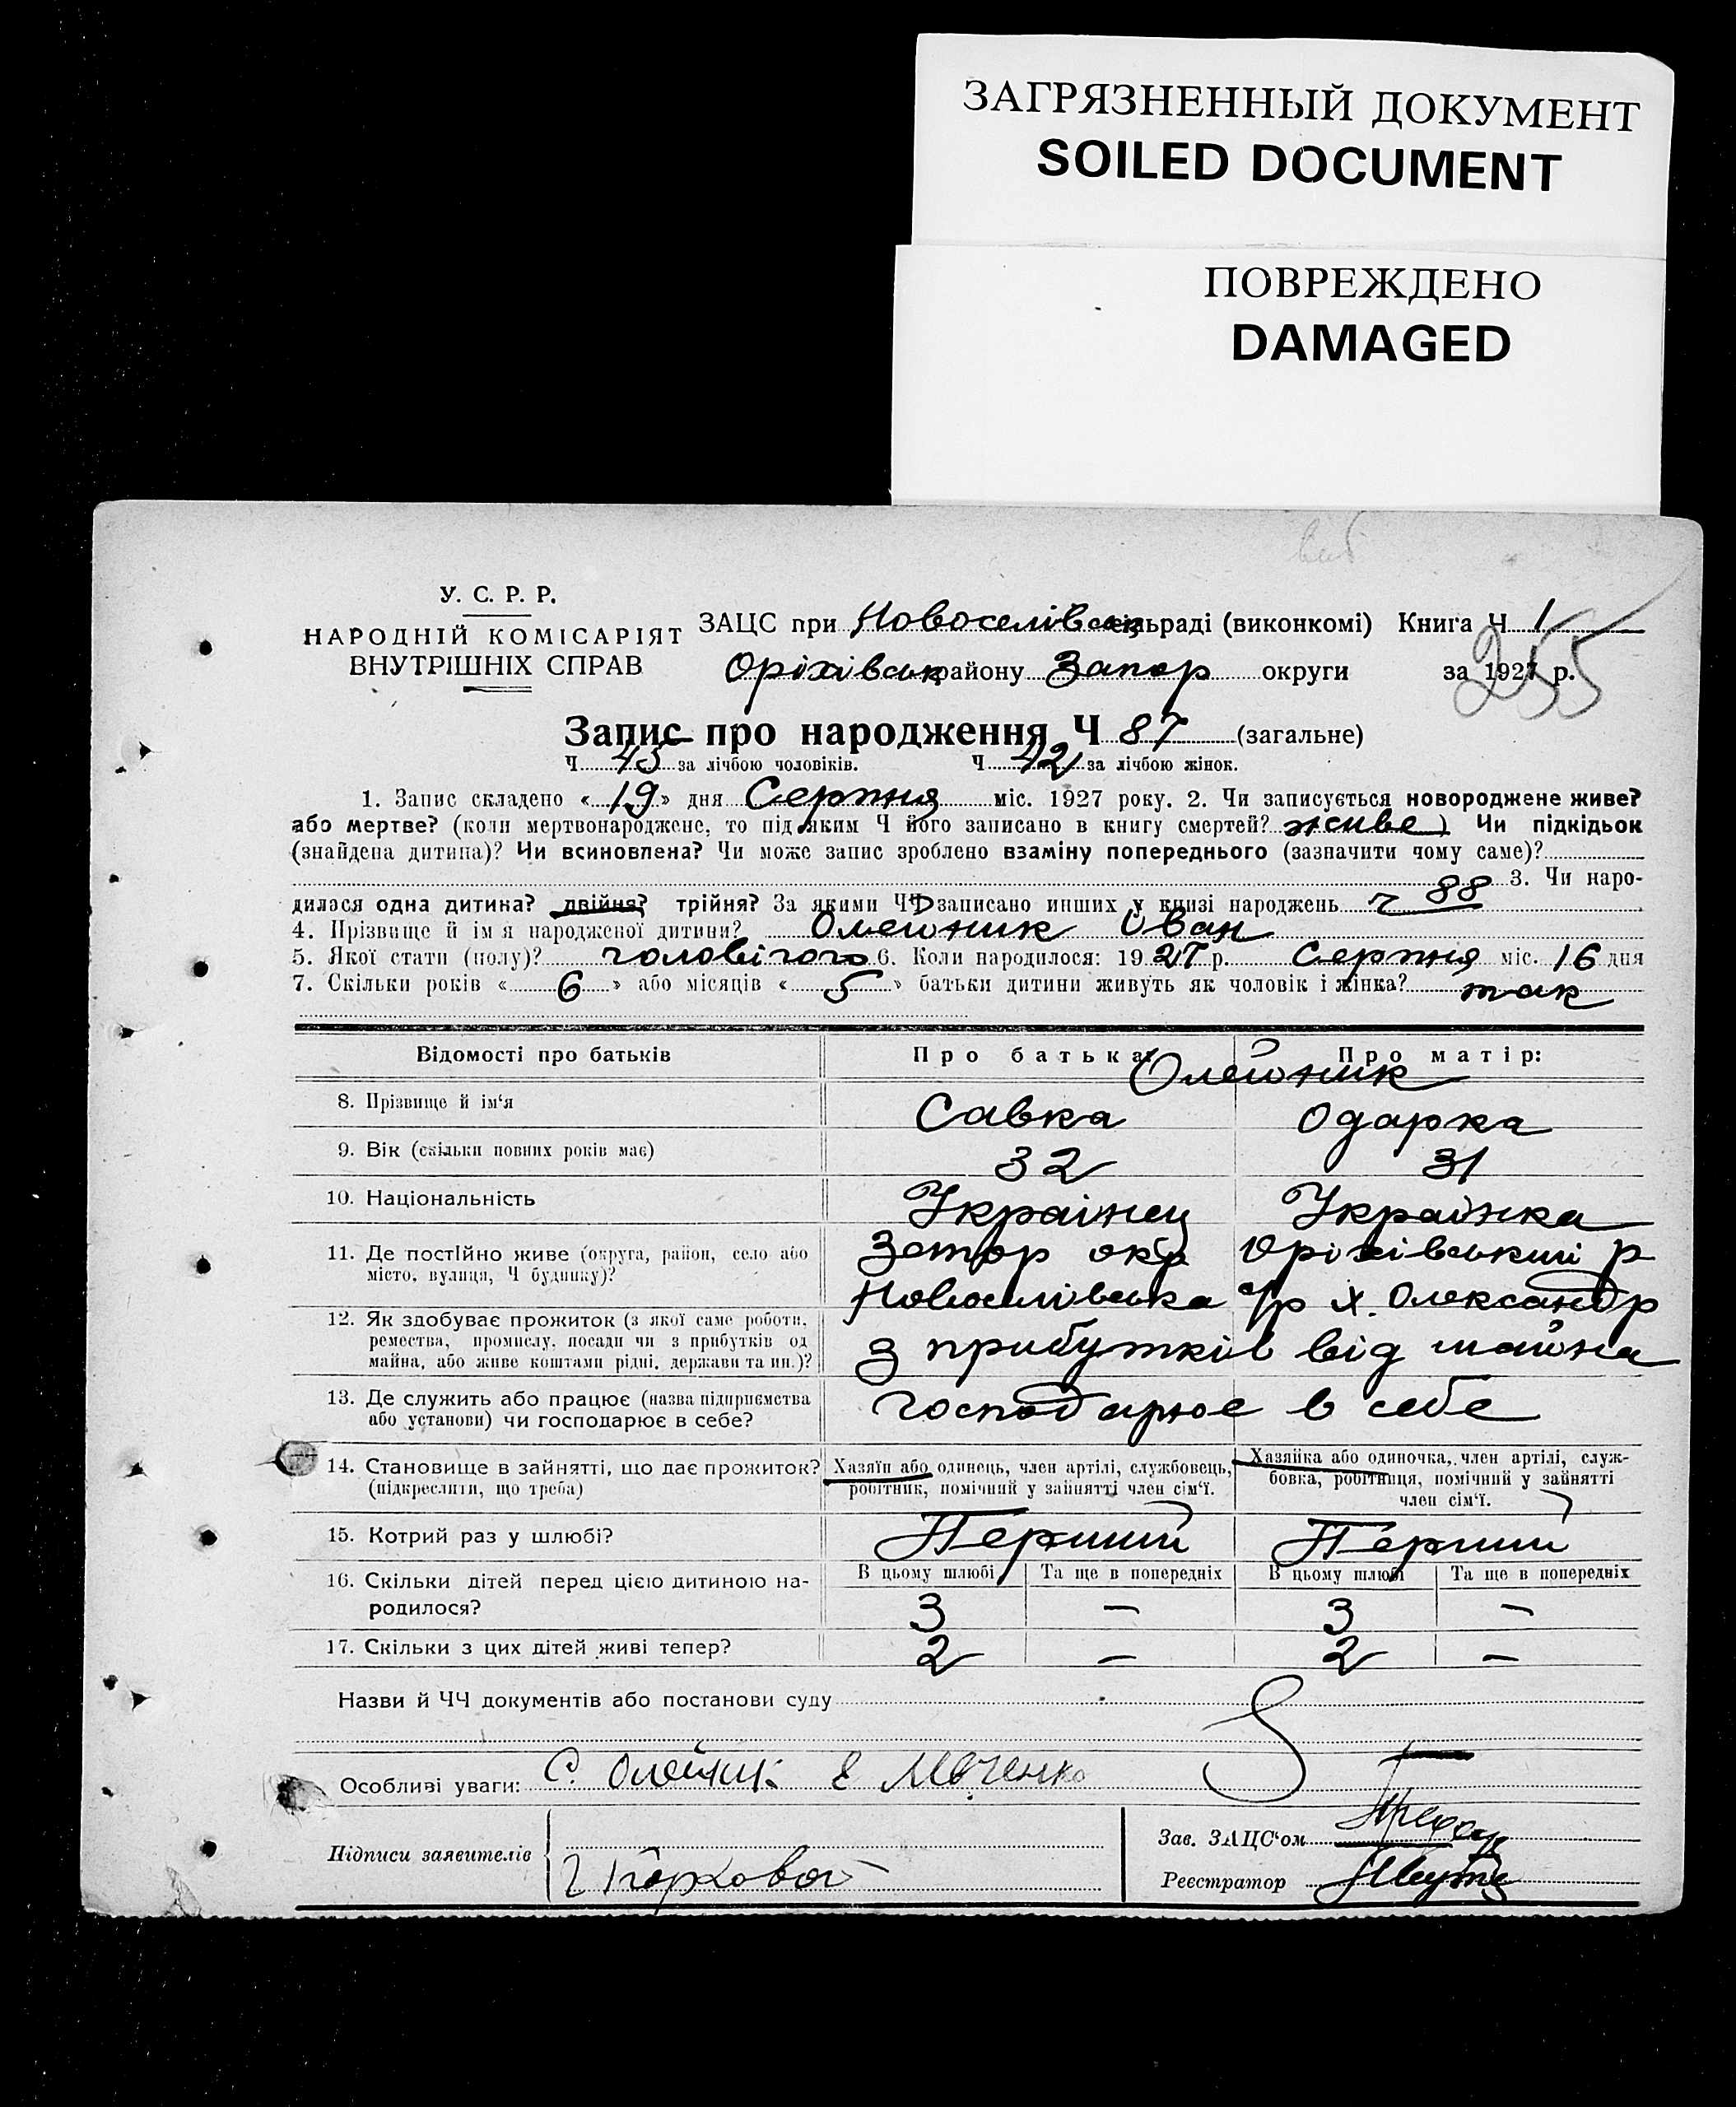 ЗАГРЯЗНЕННЫЙ ДОКУМЕНТ
SOILED DOCUMENT
ПОВРЕЖДЕНО
DAMAGED
У. С. Р. Р.
НАРОДНІЙ КОМІСАРІЯТ
ВНУТРІШНІХ СПРАВ
ЗАЦС при Новоселівськ сільраді (виконкомі) Книга Ч 1
Оріхівськ району Запор округи за 1927 р.
255
Запис про народження Ч 87 (загальне)
Ч 45 за лічбою чоловіків. Ч 42 за лічбою жінок.
1. Запис складено «19» дня Серпня міс. 1927 року. 2. Чи записується новороджене живе?
або мертве? (коли мертвонароджене, то під яким Ч його записано в книгу смертей? живе) Чи підкідьок
(знайдена дитина)? Чи всиновлена? Чи може запис зроблено взаміну попереднього (зазначити чому саме)?
3. Чи наро-
дилася одна дитина? двійня? трійня? За якими ЧЧ записано инших у книзі народжень ч 88
4. Прізвище й ім я народженої дитини? Олейник Іван
5. Якої стати (полу)? чоловічого 6. Коли народилося: 1927 р. Серпня міс. 16 дня
7. Скільки років «6» або місяців «5» батьки дитини живуть як чоловік і жінка? так
Відомості про батьків Про батька: Про матір:
Олейник
8. Прізвище й ім'я Савка Одарка
9. Вік (скільки повних років має) 32 31
10. Національність Українец Українка
11. Де постійно живе (округа, район, село або Запор окр Оріхівський р
місто, вулиця, Ч будинку)? Новоселівська с/р х. Олександр
12. Як здобуває прожиток (з якої саме роботи,
ремества, промислу, посади чи з прибутків од з прибутків від майна
майна, або живе коштами рідні, держави та ин.)?
13. Де служить або працює (назва підприємства господарює в себе
або установи) чи господарює в себе?
14. Становище в зайнятті, що дає прожиток? Хазяїн або одинець, член артілі, службовець, Хазяйка або одиночка, член артілі, служ-
(підкреслити, що треба) робітник, помічний у зайнятті член сім'ї. бовка, робітниця, помічний у зайнятті
член сім'ї.
15. Котрий раз у шлюбі? Перший Перший
16. Скільки дітей перед цією дитиною на- В цьому шлюбі Та ще в попередніх В цьому шлюбі Та ще в попередніх
родилося? 3 — 3 —
17. Скільки з цих дітей живі тепер? 2 — 2 —
Назви й ЧЧ документів або постанови суду
Особливі уваги: С. Олейник Е
Підписи заявителів
Зав. ЗАЦС'ом
Реєстратор